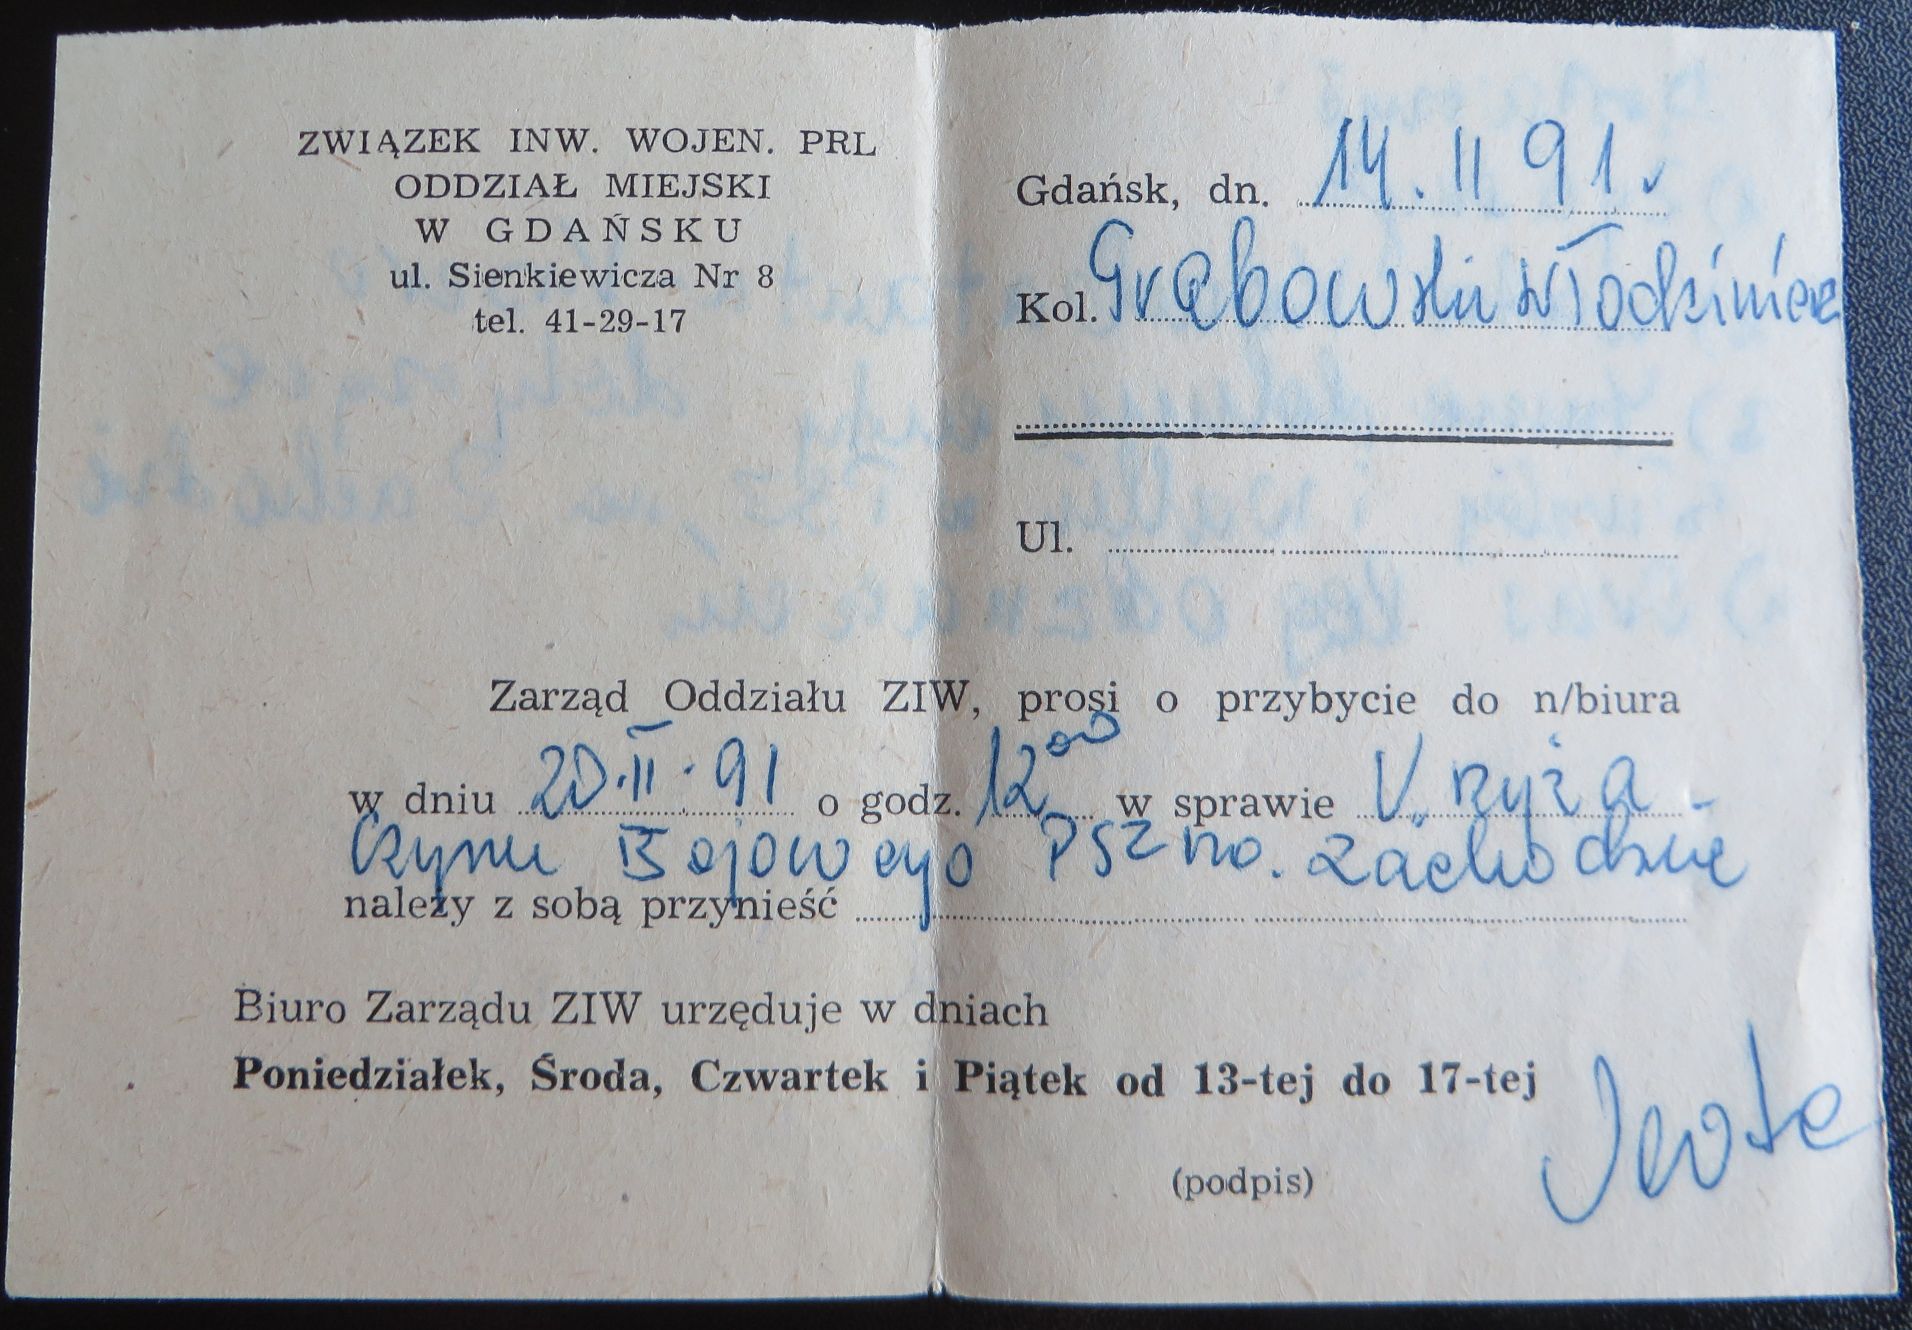 ZWIĄZEK INW. WOJEN. PRL
ODDZIAŁ MIEJSKI
W GDAŃSKU
ul. Sienkiewicza Nr 8
tel. 41-29-17
Gdańsk, dn. 14. II 91.
Kol. Grębowski Włodzimierz
Ul.
Zarząd Oddziału ZIW, prosi o przybycie do n/biura
w dniu 20.II.91 o godz. 12⁰⁰ w sprawie
Czynu Bojowego PSZ na zachodzie
należy z sobą przynieść
Biuro Zarządu ZIW urzęduje w dniach
Poniedziałek, Środa, Czwartek i Piątek od 13-tej do 17-tej
(podpis)